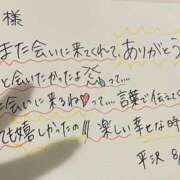 様
また会いに来てくれて、ありがとう
と会いたかったよ って....
会いに来るね♥って....言葉で伝えてく
ても嬉しかったの!! 楽しい幸せな時
平沢 8/